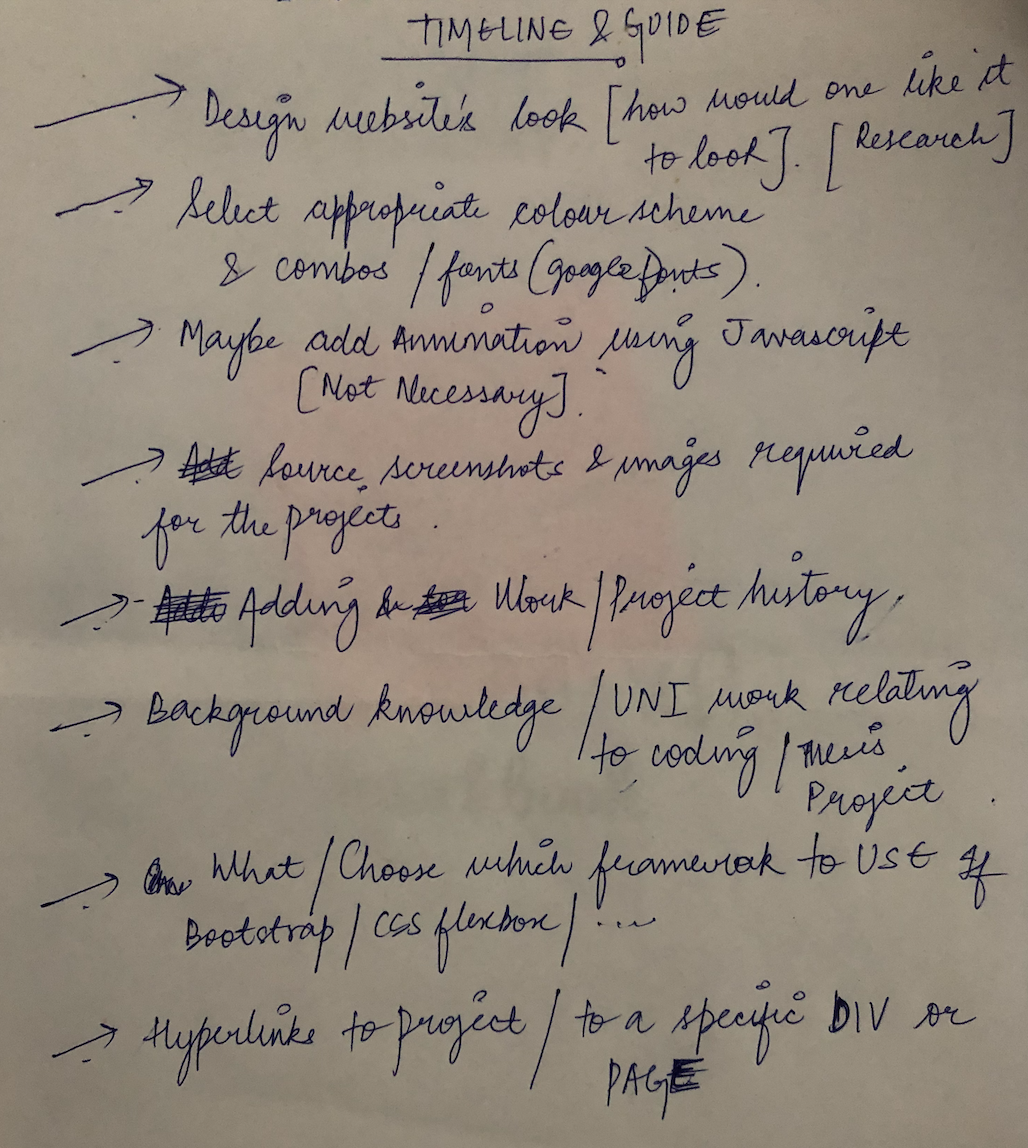 TIMELINE & GUIDE
→ Design website's look [how would one like it
to look]. [Research]
→ Select appropriate colour scheme
& combos / fonts (google fonts).
→ Maybe add Annimation using Javascript
[Not Necessary].
→ Add Source screenshots & images required
for the projects.
→ Adding & Work / Project history.
→ Background knowledge / UNI work relating
to coding / Thesis
Project.
→ What / Choose which framework to USE If
Bootstrap / CSS flexbox / ....
→ Hyperlinks to project / to a specific DIV or
PAGE